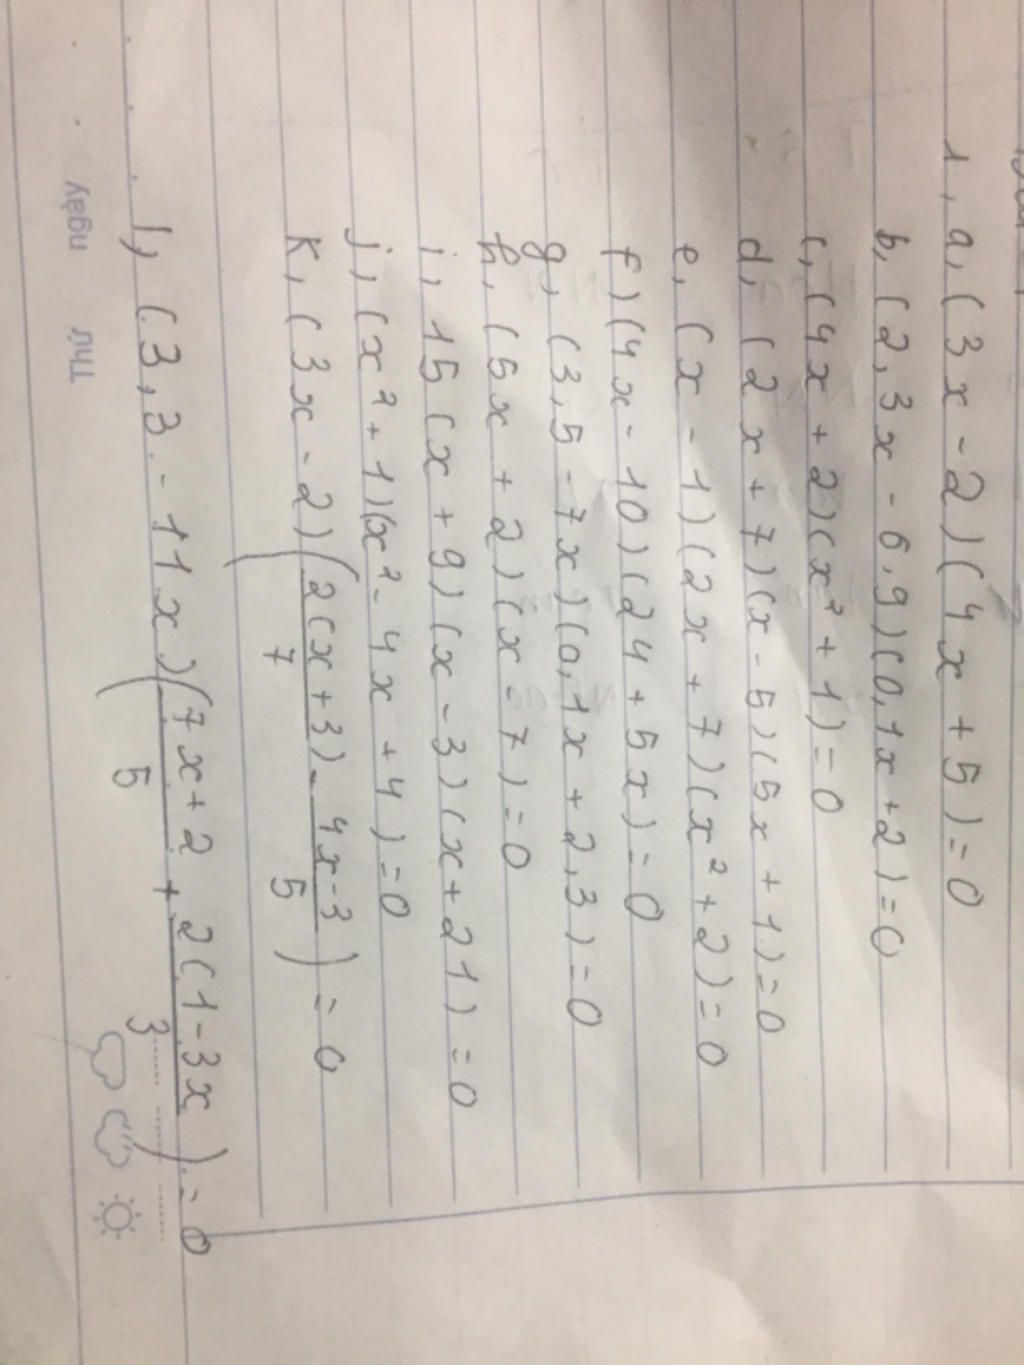 1, a, (3x - 2)(4x + 5) = 0
b, (2,3x - 6,9)(0,1x + 2) = 0
c, (4x + 2)(x² + 1) = 0
d, (2x + 7)(x - 5)(5x + 1) = 0
e, (x - 1)(2x + 7)(x² + 2) = 0
f, (4x - 10)(24 + 5x) = 0
g, (3,5 - 7x)(0,1x + 2,3) = 0
h, (5x + 2)(x - 7) = 0
i, 15(x + 9)(x - 3)(x + 21) = 0
j, (x² + 1)(x² - 4x + 4) = 0
k, (3x - 2)(2(x + 3)/7 - (4x - 3)/5) = 0
l, (3,3 - 11x)((7x + 2)/5 + 2(1 - 3x)/3) = 0
ngày TNL